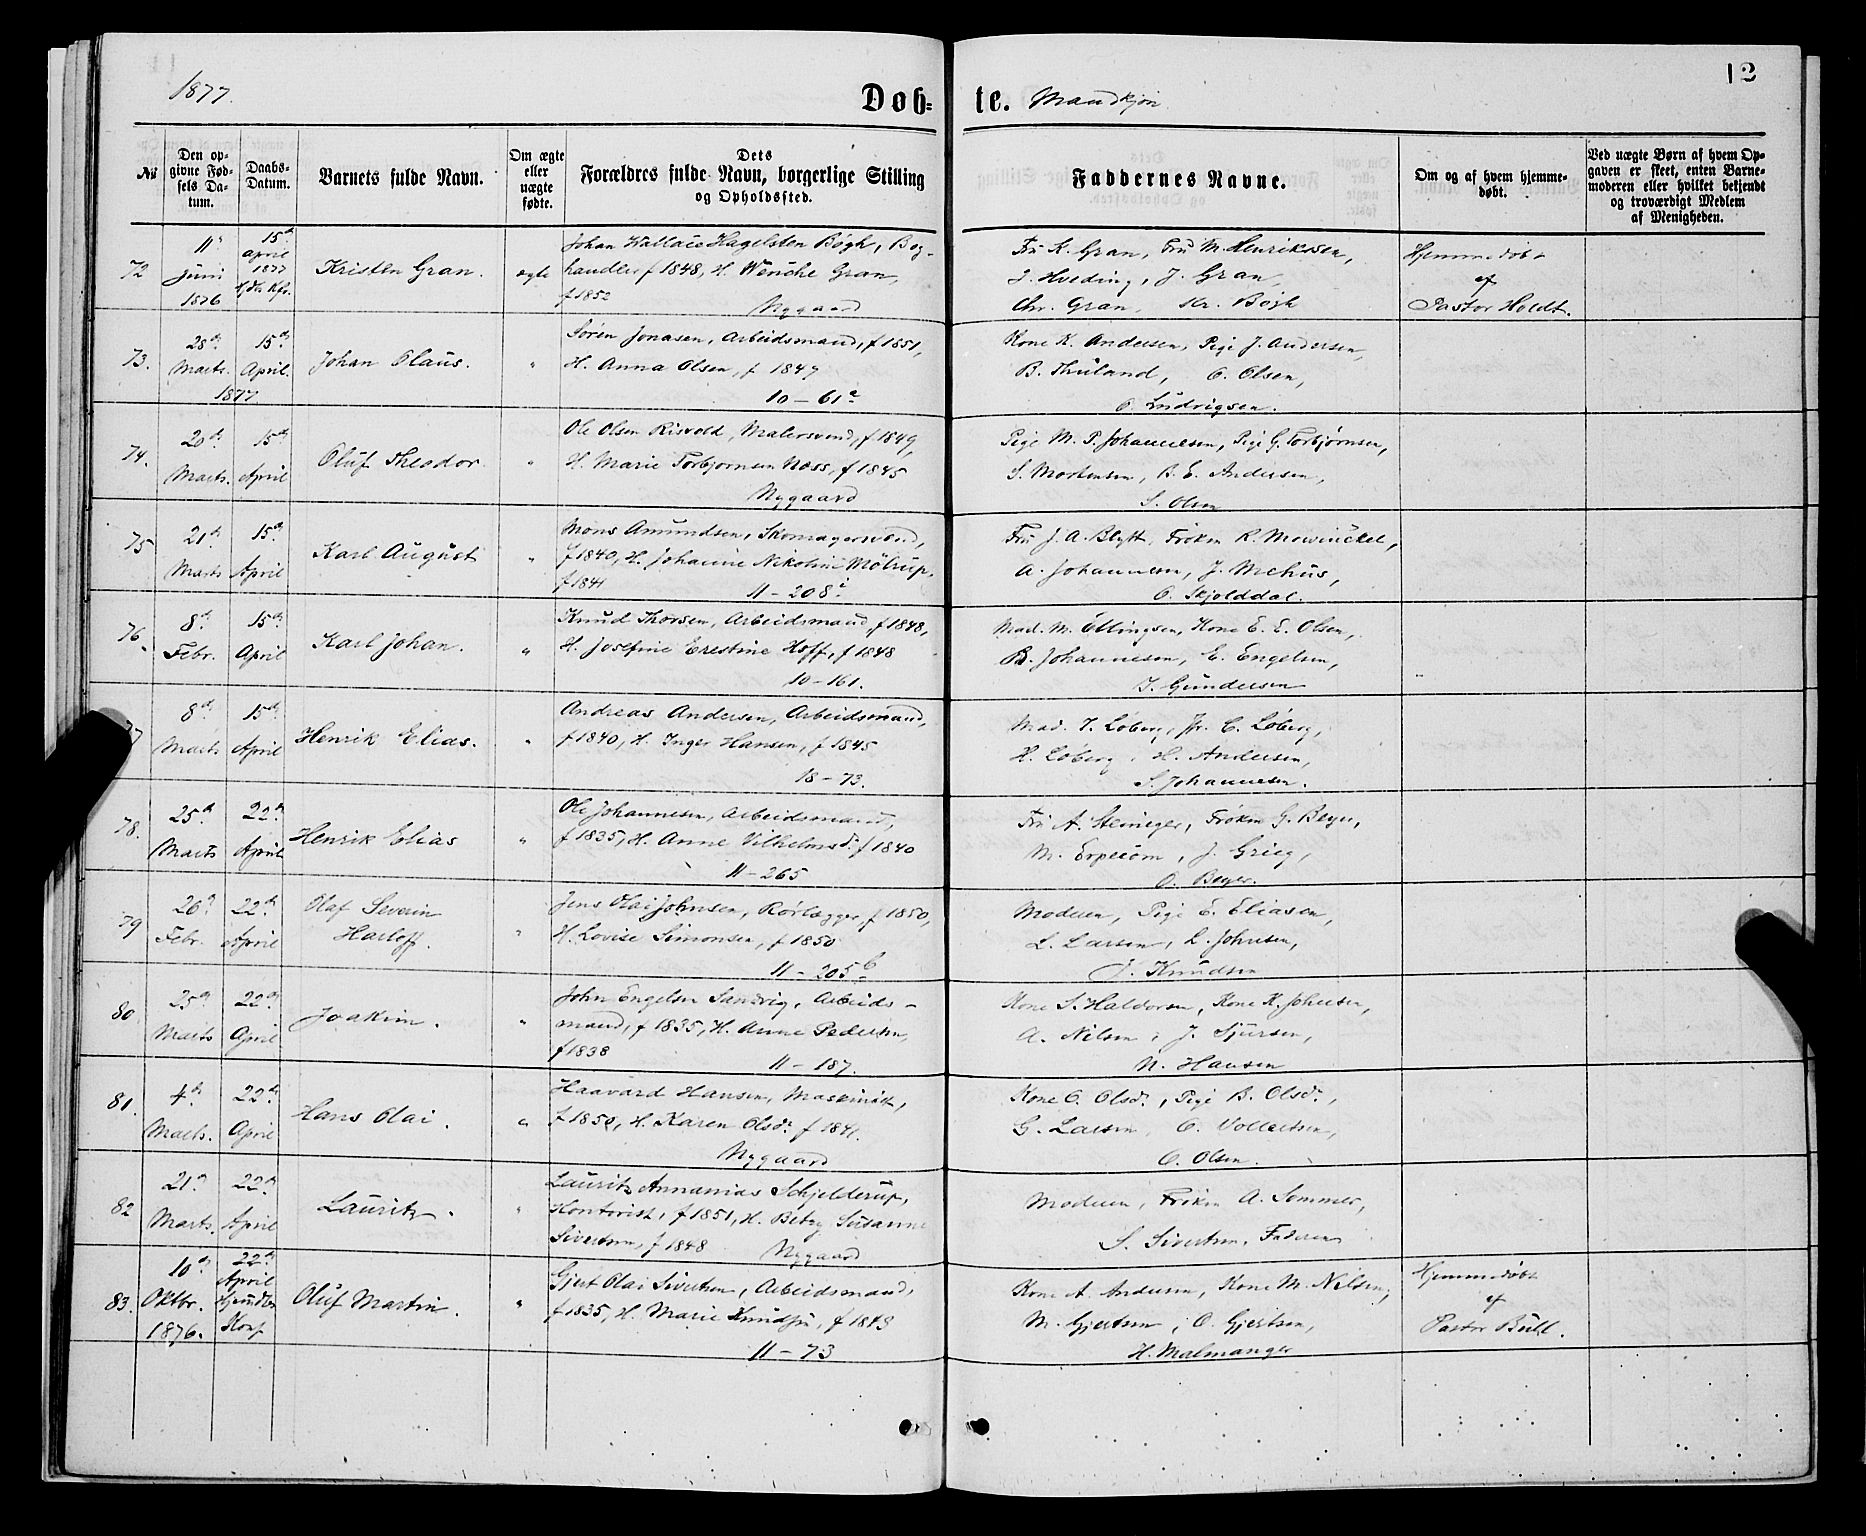 12
1877.
Døb= te. Mandkjøn
№
Den op-
givne Fød-
sels Da-
tum.
Daabs-
Datum.
Barnets fulde Navn.
Om ægte
eller
uægte
fødte.
Dets
Forældres fulde Navn, borgerlige Stilling
og Opholdssted.
Faddernes Navne.
Om og af hvem hjemme-
døbt.
Ved uægte Børn af hvem Op-
gaven er skeet, enten Barne-
moderen eller hvilket bekjendt
og troværdigt Medlem
af Menigheden.
72
11te
Juni
1876
15de
April
1877
Kristen Gran.
ægte
Johan Wallace Hagelsten Bøgh, Bog-
handler f 1848, H. Wenche Gran,
f 1852 Nygaard
Fru K. Gran, Fru M. Henriksen,
J. Gran,
Chr. Gran, Kr. Bøgh
Hjemmedøbt
af
Pastor Holdt.
73.
28de
Marts.
1877
15de
April.
Johan Olaus.
"
Sören Jonasen, Arbeidsmand, f 1851,
H. Anna Olsen, f 1847
10 – 61a
Kone K. Andersen, Pige J. Andersen,
B. Thuland, O. Olsen,
O. Ludvigsen.
74.
20de
Marts.
15de
April
Oluf Theodor
"
Ole Olsen Risvold, Malersvend, f 1849,
H. Marie Torbjørnsen Næss, f 1845
Nygaard
Pige M. P. Johannesen, Pige G. Torbjørnsen,
S. Mortensen, B. E. Andersen,
S. Olsen
75
21de
Marts
15de
April
Karl August
"
Mons Amundsen, Skomagersvend,
f 1840, H. Johanne Nikoline Møltrup,
f 1841 11 – 208i
Fru J. A. Blytt, Frøken R. Mowinckel,
A. Johannesen, J. Mehus,
O. Skjolddal.
76.
8de
Febr.
15de
April
Karl Johan.
"
Knud Thorsen, Arbeidsmand, f 1848,
H. Josefine Erestine Hoff, f 1848
10 – 161.
Mad. M. Ellingsen, Kone E. E. Olsen,
B. Johannesen, E. Engelsen,
J. Gundersen
8de
Marts
15de
April
Henrik Elias.
"
Andreas Andersen, Arbeidsmand,
f 1840, H. Inger Hansen, f 1845
18 – 73.
Mad. J. Løberg, Fr. C. Løberg,
H. Løberg, H. Andersen,
S. Johannesen.
78.
25de
Marts
22de
April
Henrik Elias
"
Ole Johannesen, Arbeidsmand,
f 1835, H. Anne Vilhelmsdr f 1840
11 – 265
Fru A. Steineger, Frøken G. Beyer,
M. Erpecom, J. Grieg,
O. Beyer.
79
26de
Febr.
22de
April
Olaf Severin
Harloff.
"
Jens Olai Johnsen, Rørlægger, f 1850,
H. Lovise Simonsen, f 1850
11 – 205b
Moderen, Pige E. Eliasen,
L. Larsen, L. Johnsen,
J. Knudsen
80
25de
Marts
22de
April
Joakim.
"
John Engelsen Sandvig, Arbeids-
mand, f 1835, H. Anne Pedersen,
f 1838 11 – 187.
Kone S. Haldorsen, Kone K. Johnsen,
A. Nilsen, J. Sjursen,
N. Hansen
81.
4de
Marts.
22de
April
Hans Olai.
"
Haavard Hansen, Maskinist,
f 1850, H. Karen Olsdr f 1841.
Nygaard
Kone O. Olsdr, Pige B. Olsdr,
G. Larsen, O. Vollertsen,
O. Olsen.
82
21de
Marts.
22de
April
Lauritz.
"
Lauritz Annanias Schjelderup,
Kontorist, f 1851, H. Betzy Susanne
Sivertsen, f 1848 Nygaard
Moderen, Frøken A. Sommer,
S. Sivertsen, Faderen
83.
10de
Oktbr.
1876.
22de
April
Oluf Martin.
"
Gjert Olai Sivertsen, Arbeidsmand,
f 1835, H. Marie Knudsen, f 1843
11 – 73
Kone A. Andersen, Kone M. Nilsen,
M. Gjertsen, O. Gjertsen,
H. Malmanger
Hjemmedøbt
af
Pastor Bull.